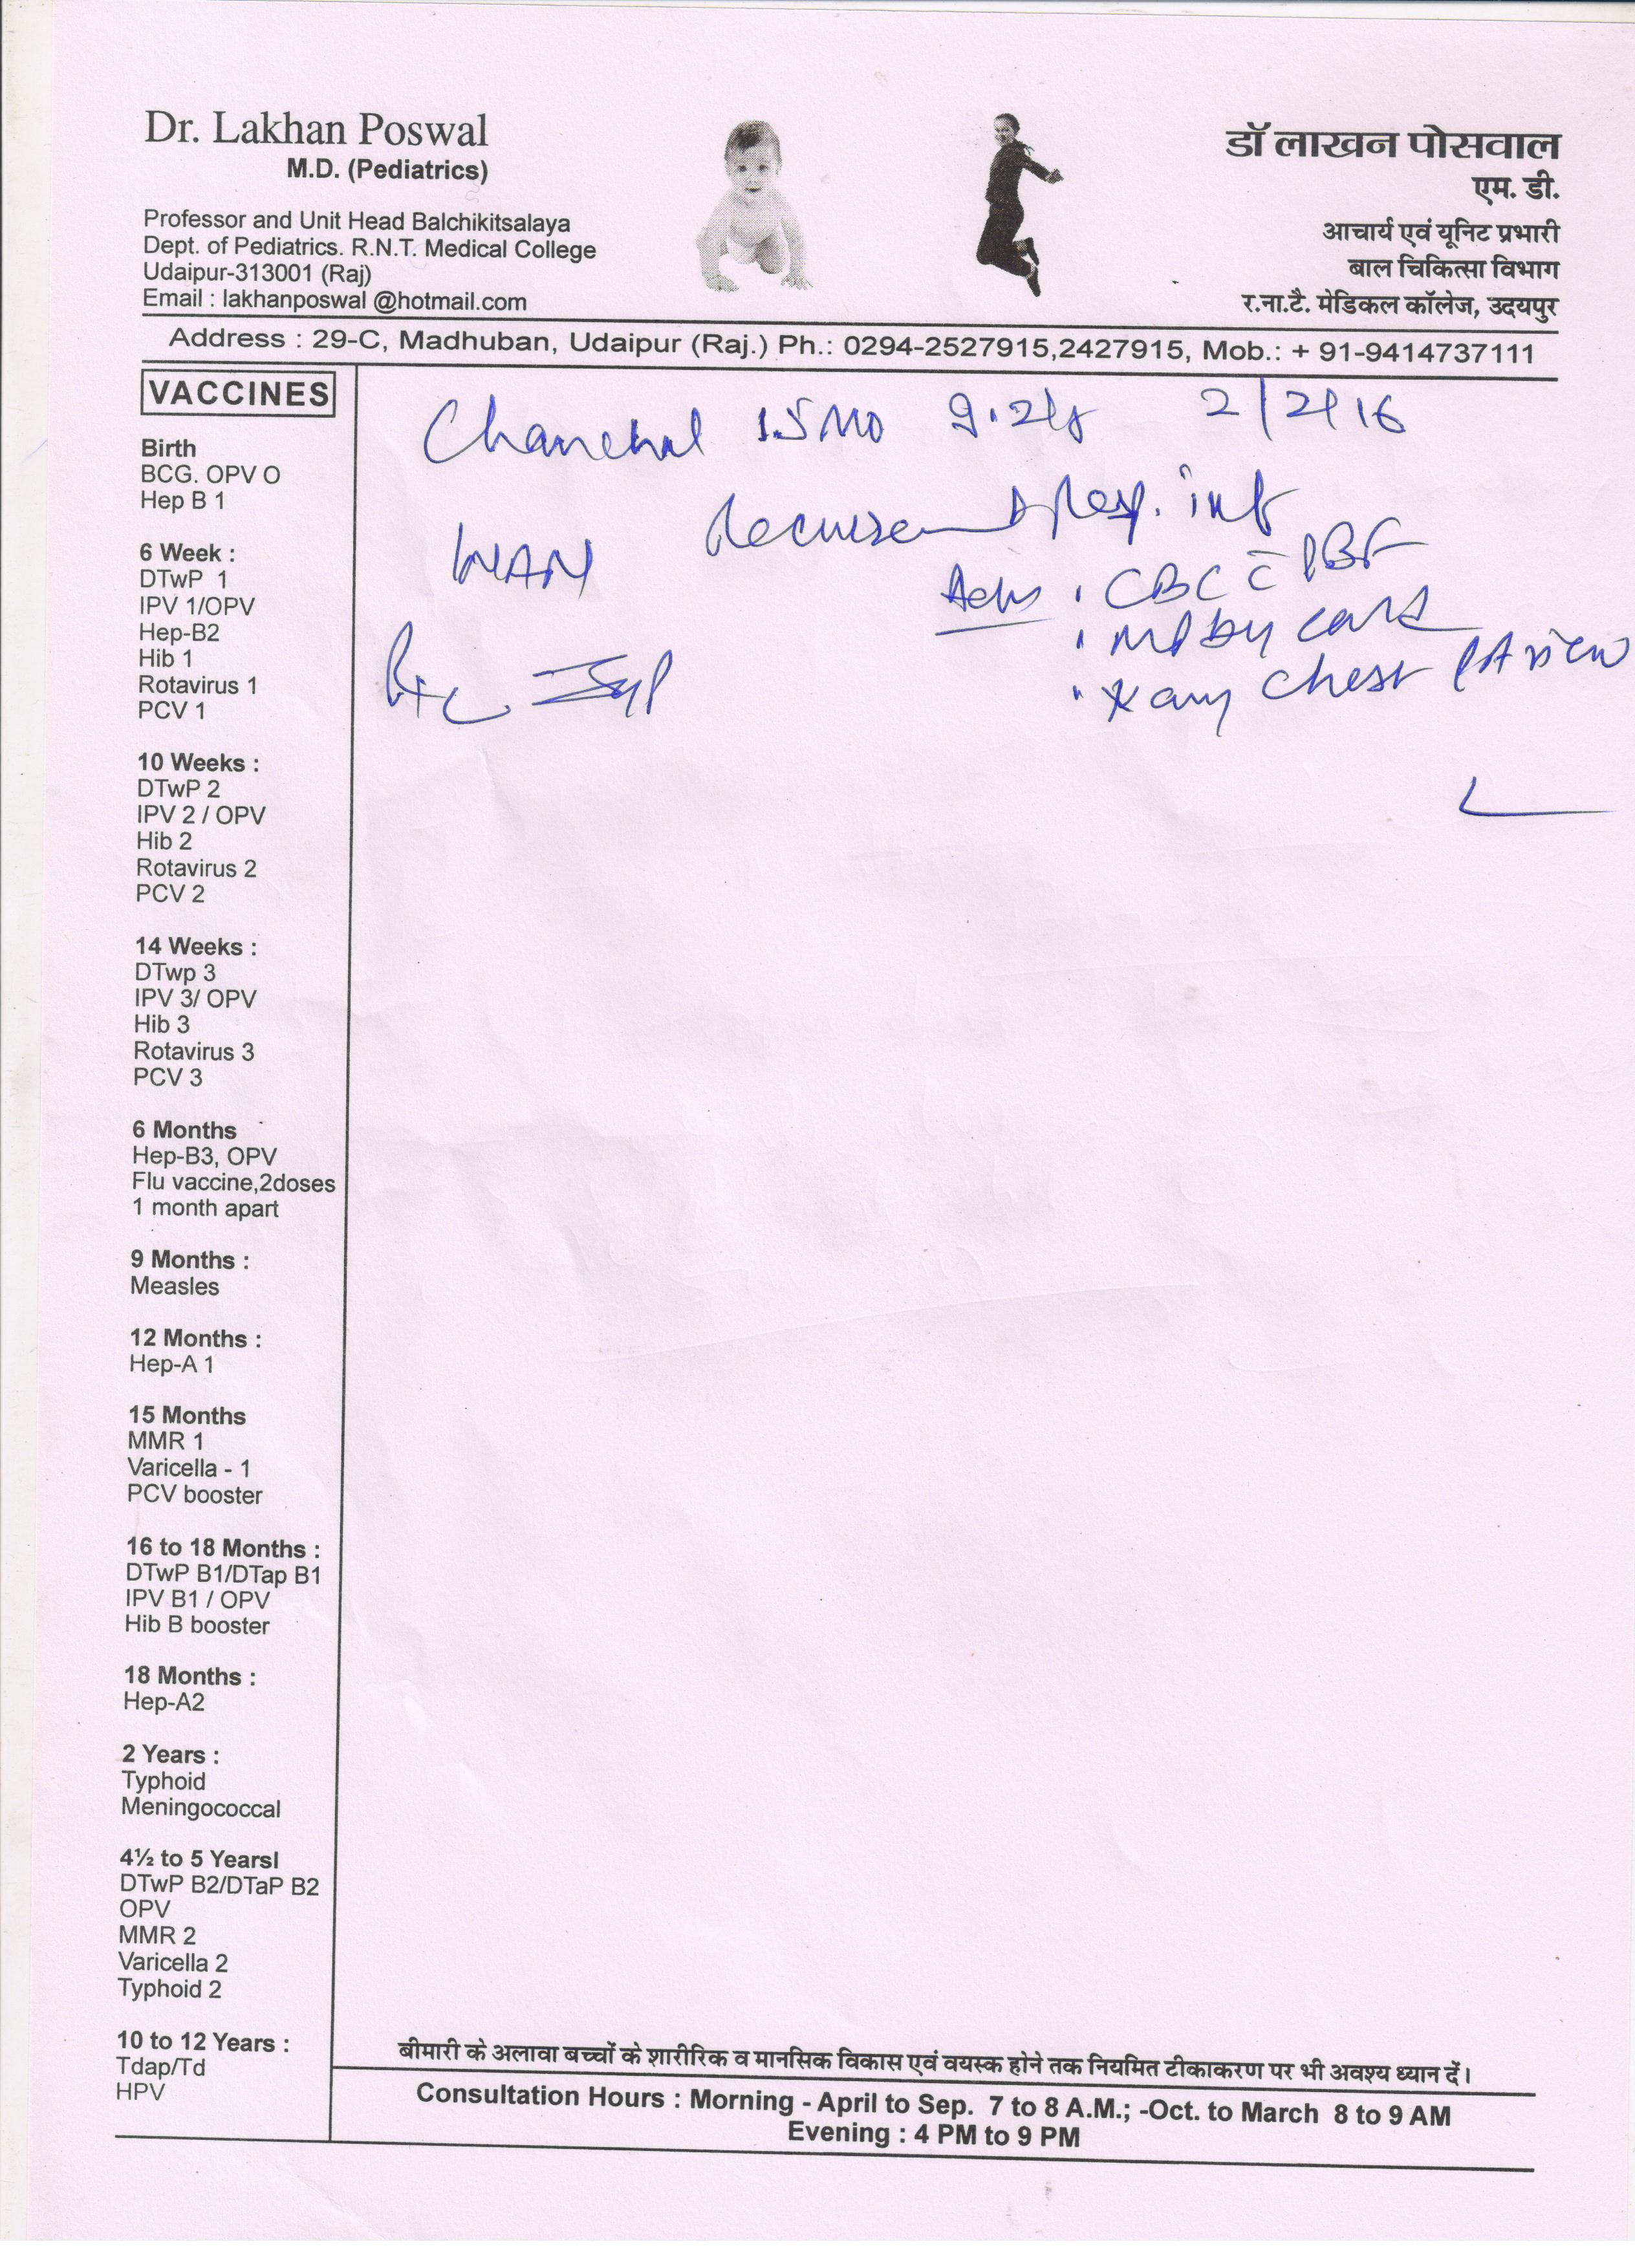 Dr. Lakhan Poswal
M.D. (Pediatrics)
Professor and Unit Head Balchikitsalaya
Dept. of Pediatrics. R.N.T. Medical College
Udaipur-313001 (Raj)
Email : lakhanposwal @hotmail.com
डॉ लाखन पोसवाल
एम. डी.
आचार्य एवं यूनिट प्रभारी
बाल चिकित्सा विभाग
र.ना.टै. मेडिकल कॉलेज, उदयपुर
Address : 29-C, Madhuban, Udaipur (Raj.) Ph.: 0294-2527915,2427915, Mob.: + 91-9414737111
VACCINES
Birth
BCG. OPV O
Hep B 1
6 Week :
DTwP 1
IPV 1/OPV
Hep-B2
Hib 1
Rotavirus 1
PCV 1
10 Weeks :
DTwP 2
IPV 2 / OPV
Hib 2
Rotavirus 2
PCV 2
14 Weeks :
DTwp 3
IPV 3/ OPV
Hib 3
Rotavirus 3
PCV 3
6 Months
Hep-B3, OPV
Flu vaccine,2doses
1 month apart
9 Months :
Measles
12 Months :
Hep-A 1
15 Months
MMR 1
Varicella - 1
PCV booster
16 to 18 Months :
DTwP B1/DTap B1
IPV B1 / OPV
Hib B booster
18 Months :
Hep-A2
2 Years :
Typhoid
Meningococcal
4½ to 5 Yearsl
DTwP B2/DTaP B2
OPV
MMR 2
Varicella 2
Typhoid 2
10 to 12 Years :
Tdap/Td
HPV
Chanchal 15 Mo 2/2/16
Recurrent Resp. inf
Adv . CBC c̄ PBF
. MP by card
. X ray Chest PA view
बीमारी के अलावा बच्चों के शारीरिक व मानसिक विकास एवं वयस्क होने तक नियमित टीकाकरण पर भी अवश्य ध्यान दें।
Consultation Hours : Morning - April to Sep. 7 to 8 A.M.; -Oct. to March 8 to 9 AM
Evening : 4 PM to 9 PM